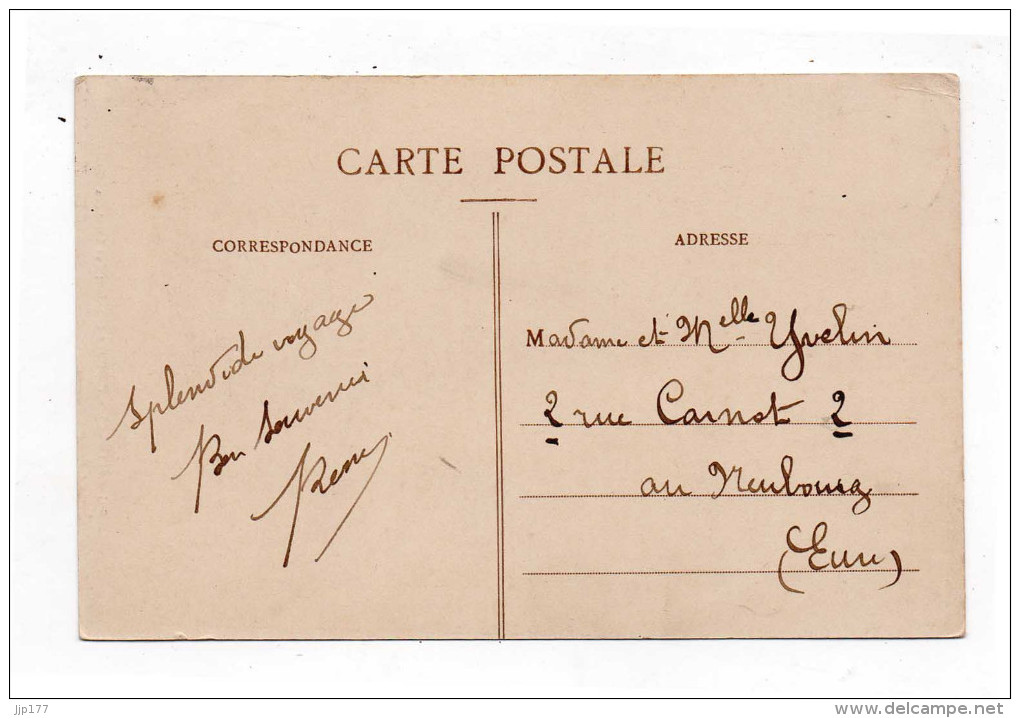 CARTE POSTALE
CORRESPONDANCE
Splendide voyage
Bon souvenir
René
ADRESSE
Madame et Melle Yvelin
2 rue Carnot 2
au Neubourg
(Eure)
jjp177
www.delcampe.net